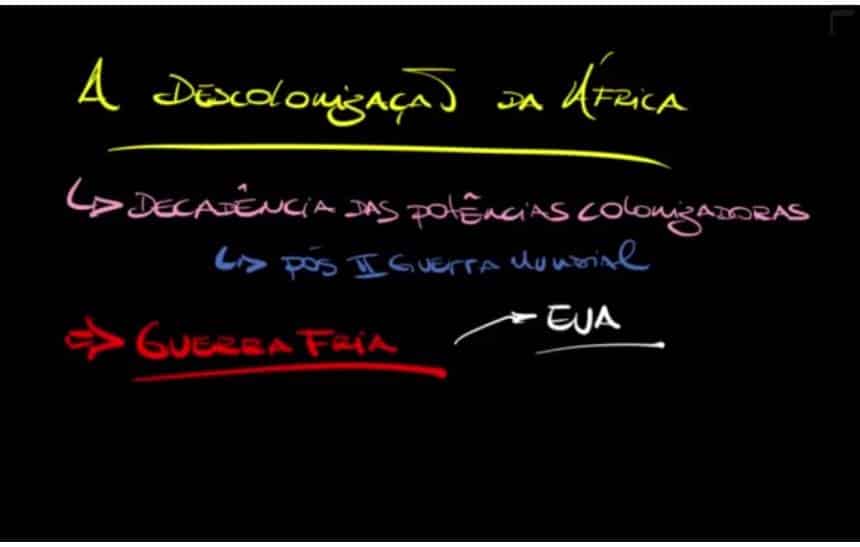 A DESCOLONIZAÇÃO DA ÁFRICA
↳ DECADÊNCIA DAS POTÊNCIAS COLONIZADORAS
↳ PÓS II GUERRA MUNDIAL
⇒ GUERRA FRIA → EUA